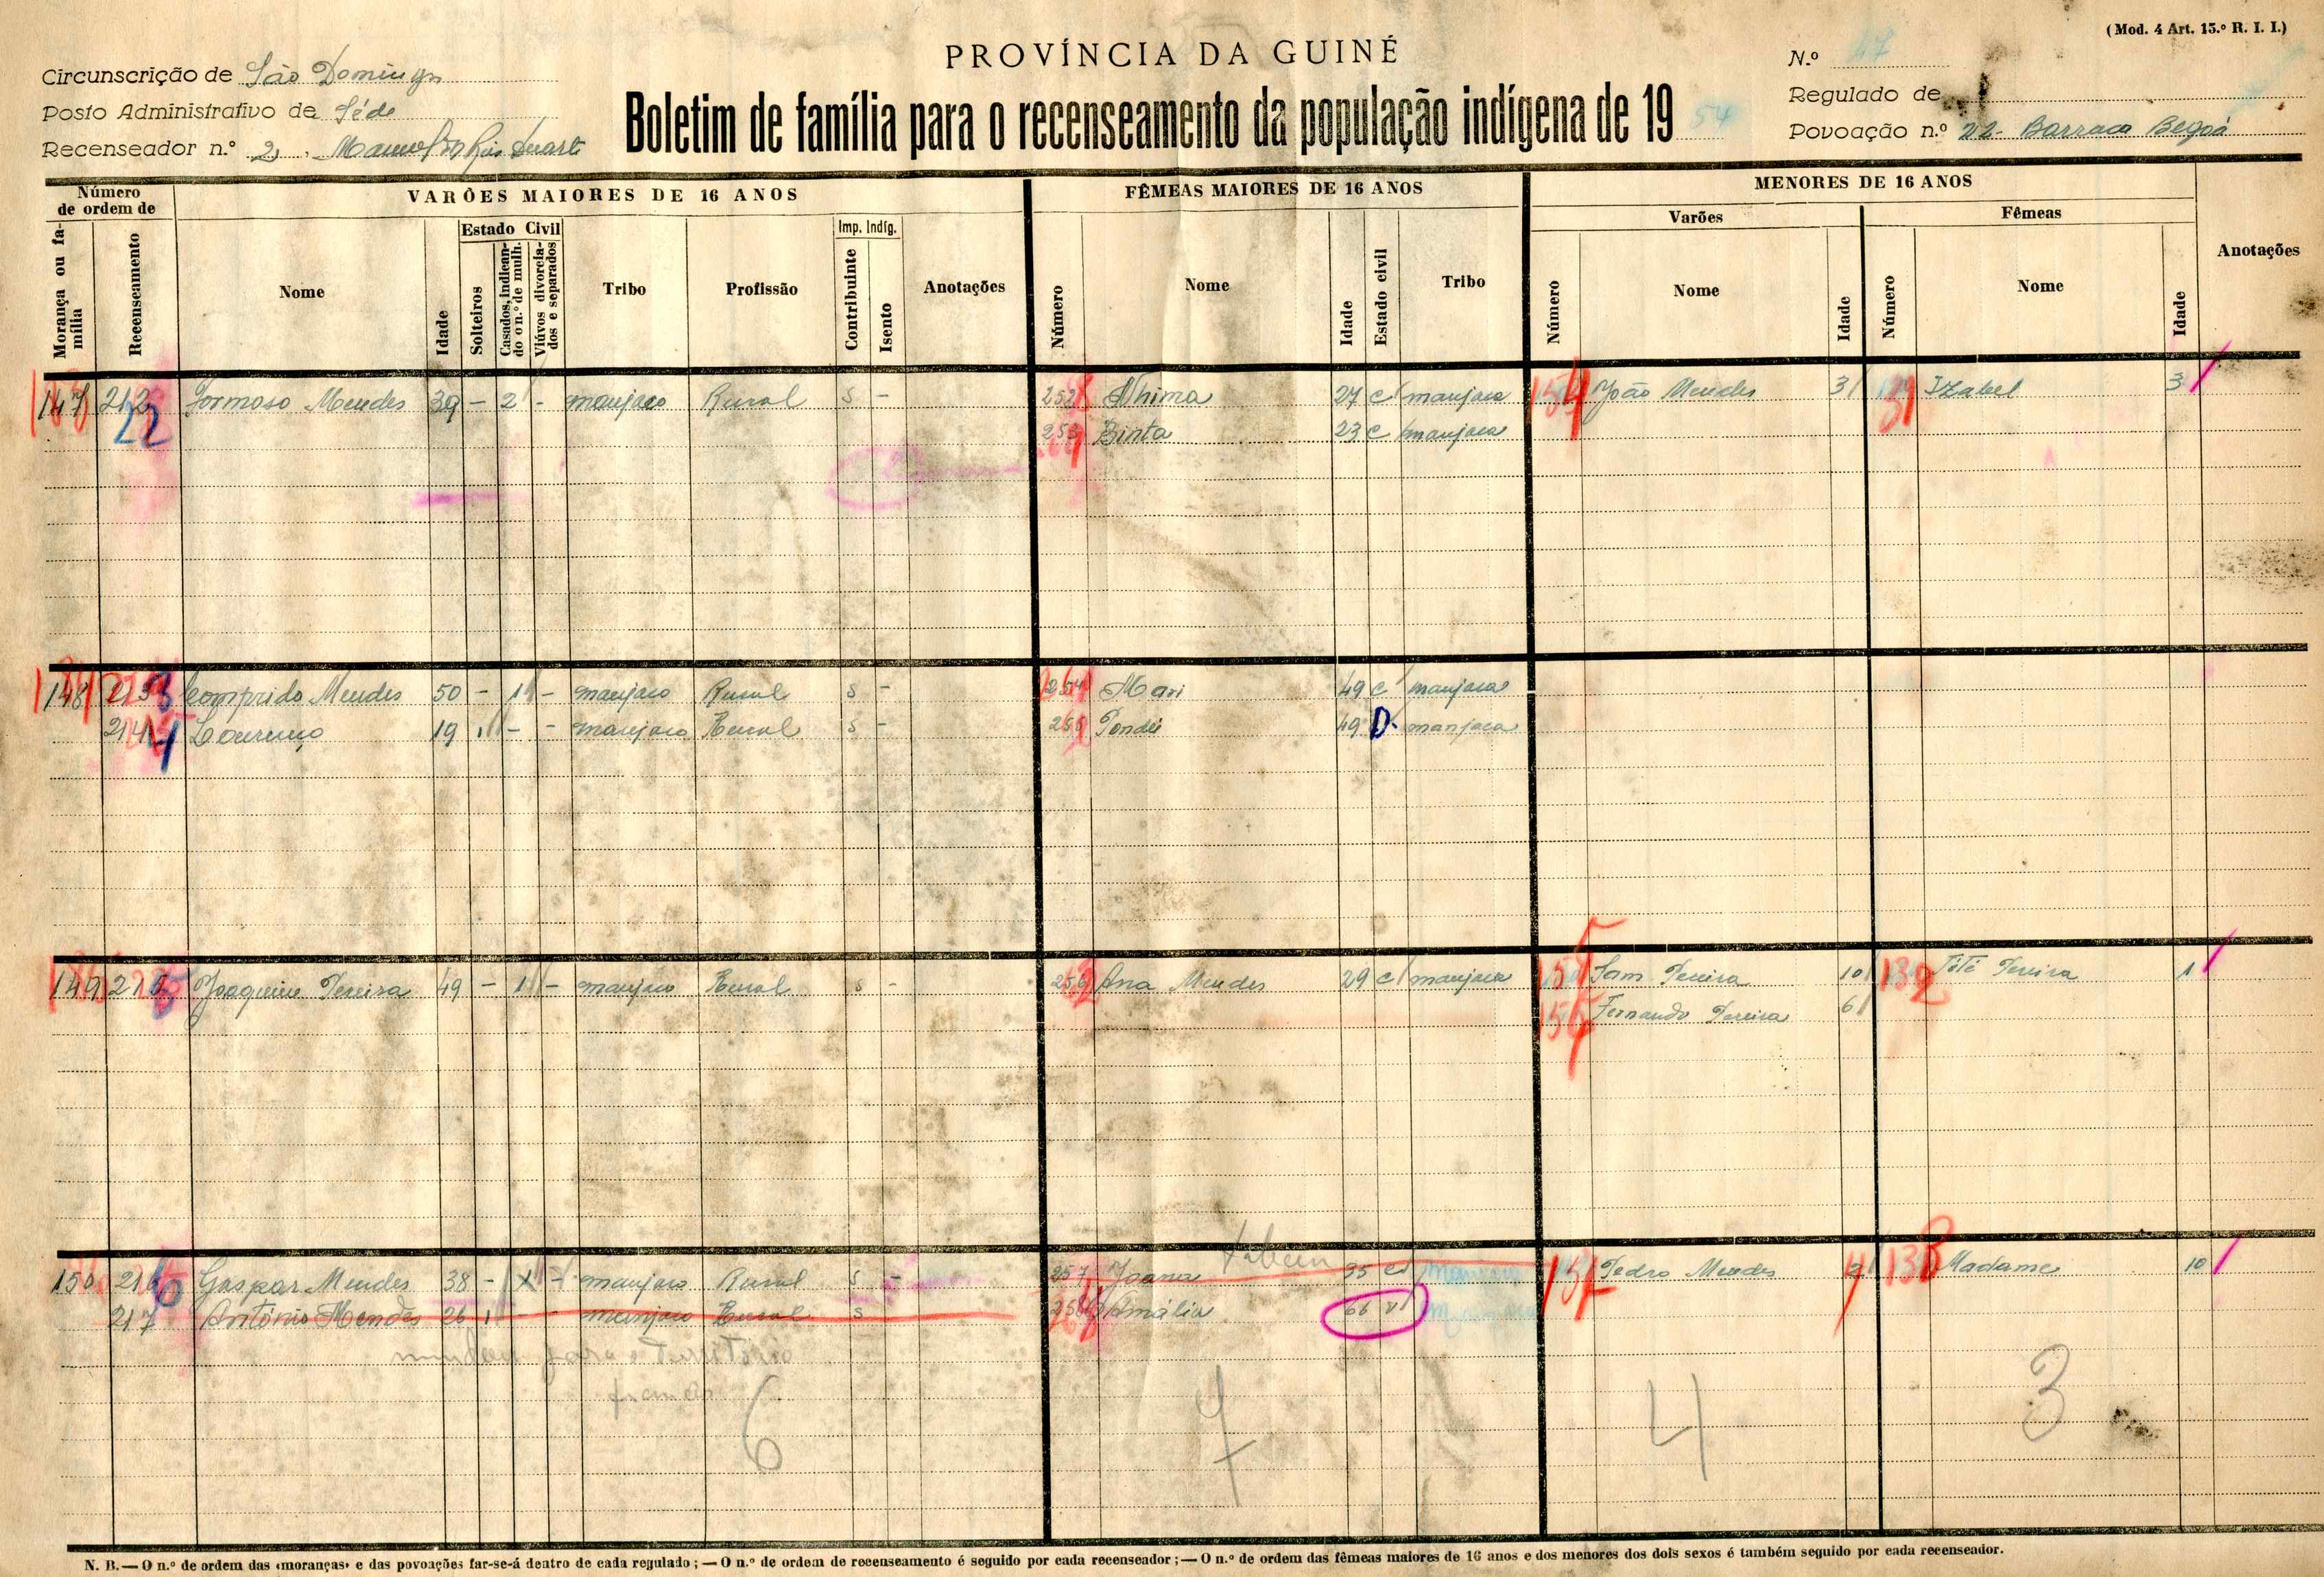 (Mod. 4 Art. 15.º R. I. I.)
PROVÍNCIA DA GUINÉ
Boletim de família para o recenseamento da população indígena de 1954
Circunscrição de São Domingos
Posto Administrativo de Séde
Recenseador n.º 2,
N.º 47
Regulado de
Povoação n.º 22 - Barraca Begoá
Número de ordem de
VARÕES MAIORES DE 16 ANOS
FÊMEAS MAIORES DE 16 ANOS
MENORES DE 16 ANOS
Varões
Fêmeas
Morança ou família
Recenseamento
Nome
Idade
Estado Civil
Solteiros
Casados, indicando o n.º de mulh.
Viúvos divorciados e separados
Tribo
Profissão
Imp. Indíg.
Contribuinte
Isento
Anotações
Número
Nome
Idade
Estado civil
Tribo
Número
Nome
Idade
Número
Nome
Idade
Anotações
147 212 Formoso Mendes 39 - 2 - manjaco Rural S - 252 Nhima 27 C manjaca João Mendes 3 Izabel 3
22
253 Binta 23 C manjaca
148 213 Comprido Mendes 50 - 1 - manjaco Rural S - 254 Mari 49 C manjaca
214 Lourenço 19 1 - - manjaco Rural S - 255 49 D. manjaca
149 215 Joaquim Pereira 49 - 1 - manjaco Rural S - 256 Ana Mendes 29 C manjaca 155 Sam Pereira 10 132 Tété Pereira 1
156 Fernando Pereira 6
150 216 Gaspar Mendes 38 - X - manjaco Rural S - 257 Joana 35 C 157 Pedro Mendes 2 133 Madame 10
217 António Mendes 26 1 - - manjaco Rural S 258 Amália 66 V
para o Território
6 7 4 3
N. B. — O n.º de ordem das «moranças» e das povoações far-se-á dentro de cada regulado; — O n.º de ordem de recenseamento é seguido por cada recenseador; — O n.º de ordem das fêmeas maiores de 16 anos e dos menores dos dois sexos é também seguido por cada recenseador.